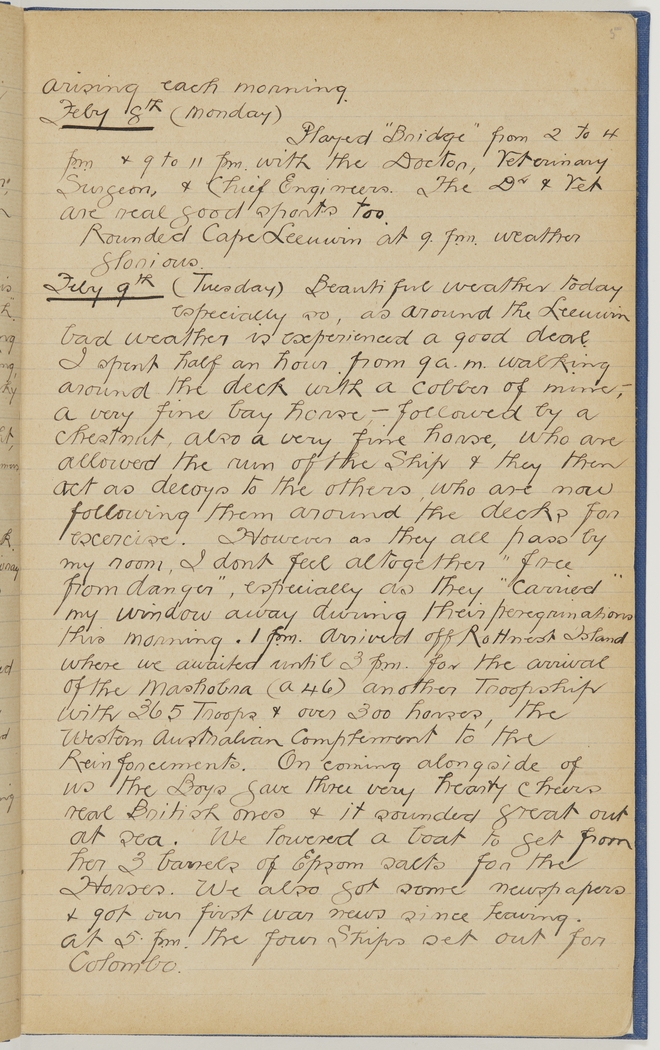 5
arising each morning.
Feby 8th (Monday)
Played "Bridge" from 2 to 4
pm & 9 to 11 pm. with the Doctor, Veterinary
Surgeon, & Chief Engineers. The Dr & Vet
are real good sports too.
Rounded Cape Leeuwin at 9. pm. weather
glorious.
Feby 9th (Tuesday) Beautiful weather today
especially so, as around the Leeuwin
bad weather is experienced a good deal.
I spent half an hour from 9 a.m. walking
around the deck with a cobber of mine,-
a very fine bay horse - followed by a
chestnut, also a very fine horse, who are
allowed the run of the Ship & they then
act as decoys to the others, who are now
following them around the decks for
exercise. However as they all pass by
my room, I dont feel altogether "free
from danger", especially as they "carried"
my window away during their peregrinations
this morning. 1 pm. arrived off Rottnest Island
where we awaited until 3 pm. for the arrival
of the Mashobra (A 46) another Troopship
with 365 Troops & over 300 horses, the
Western Australian Complement to the
Reinforcements. On coming alongside of
us the Boys gave three very hearty cheers
real British ones & it sounded great out
at sea. We lowered a boat to get from
her 3 barrels of Epsom salts for the
Horses. We also got some newspapers
& got our first war news since leaving.
at 5. pm. the four Ships set out for
Colombo.